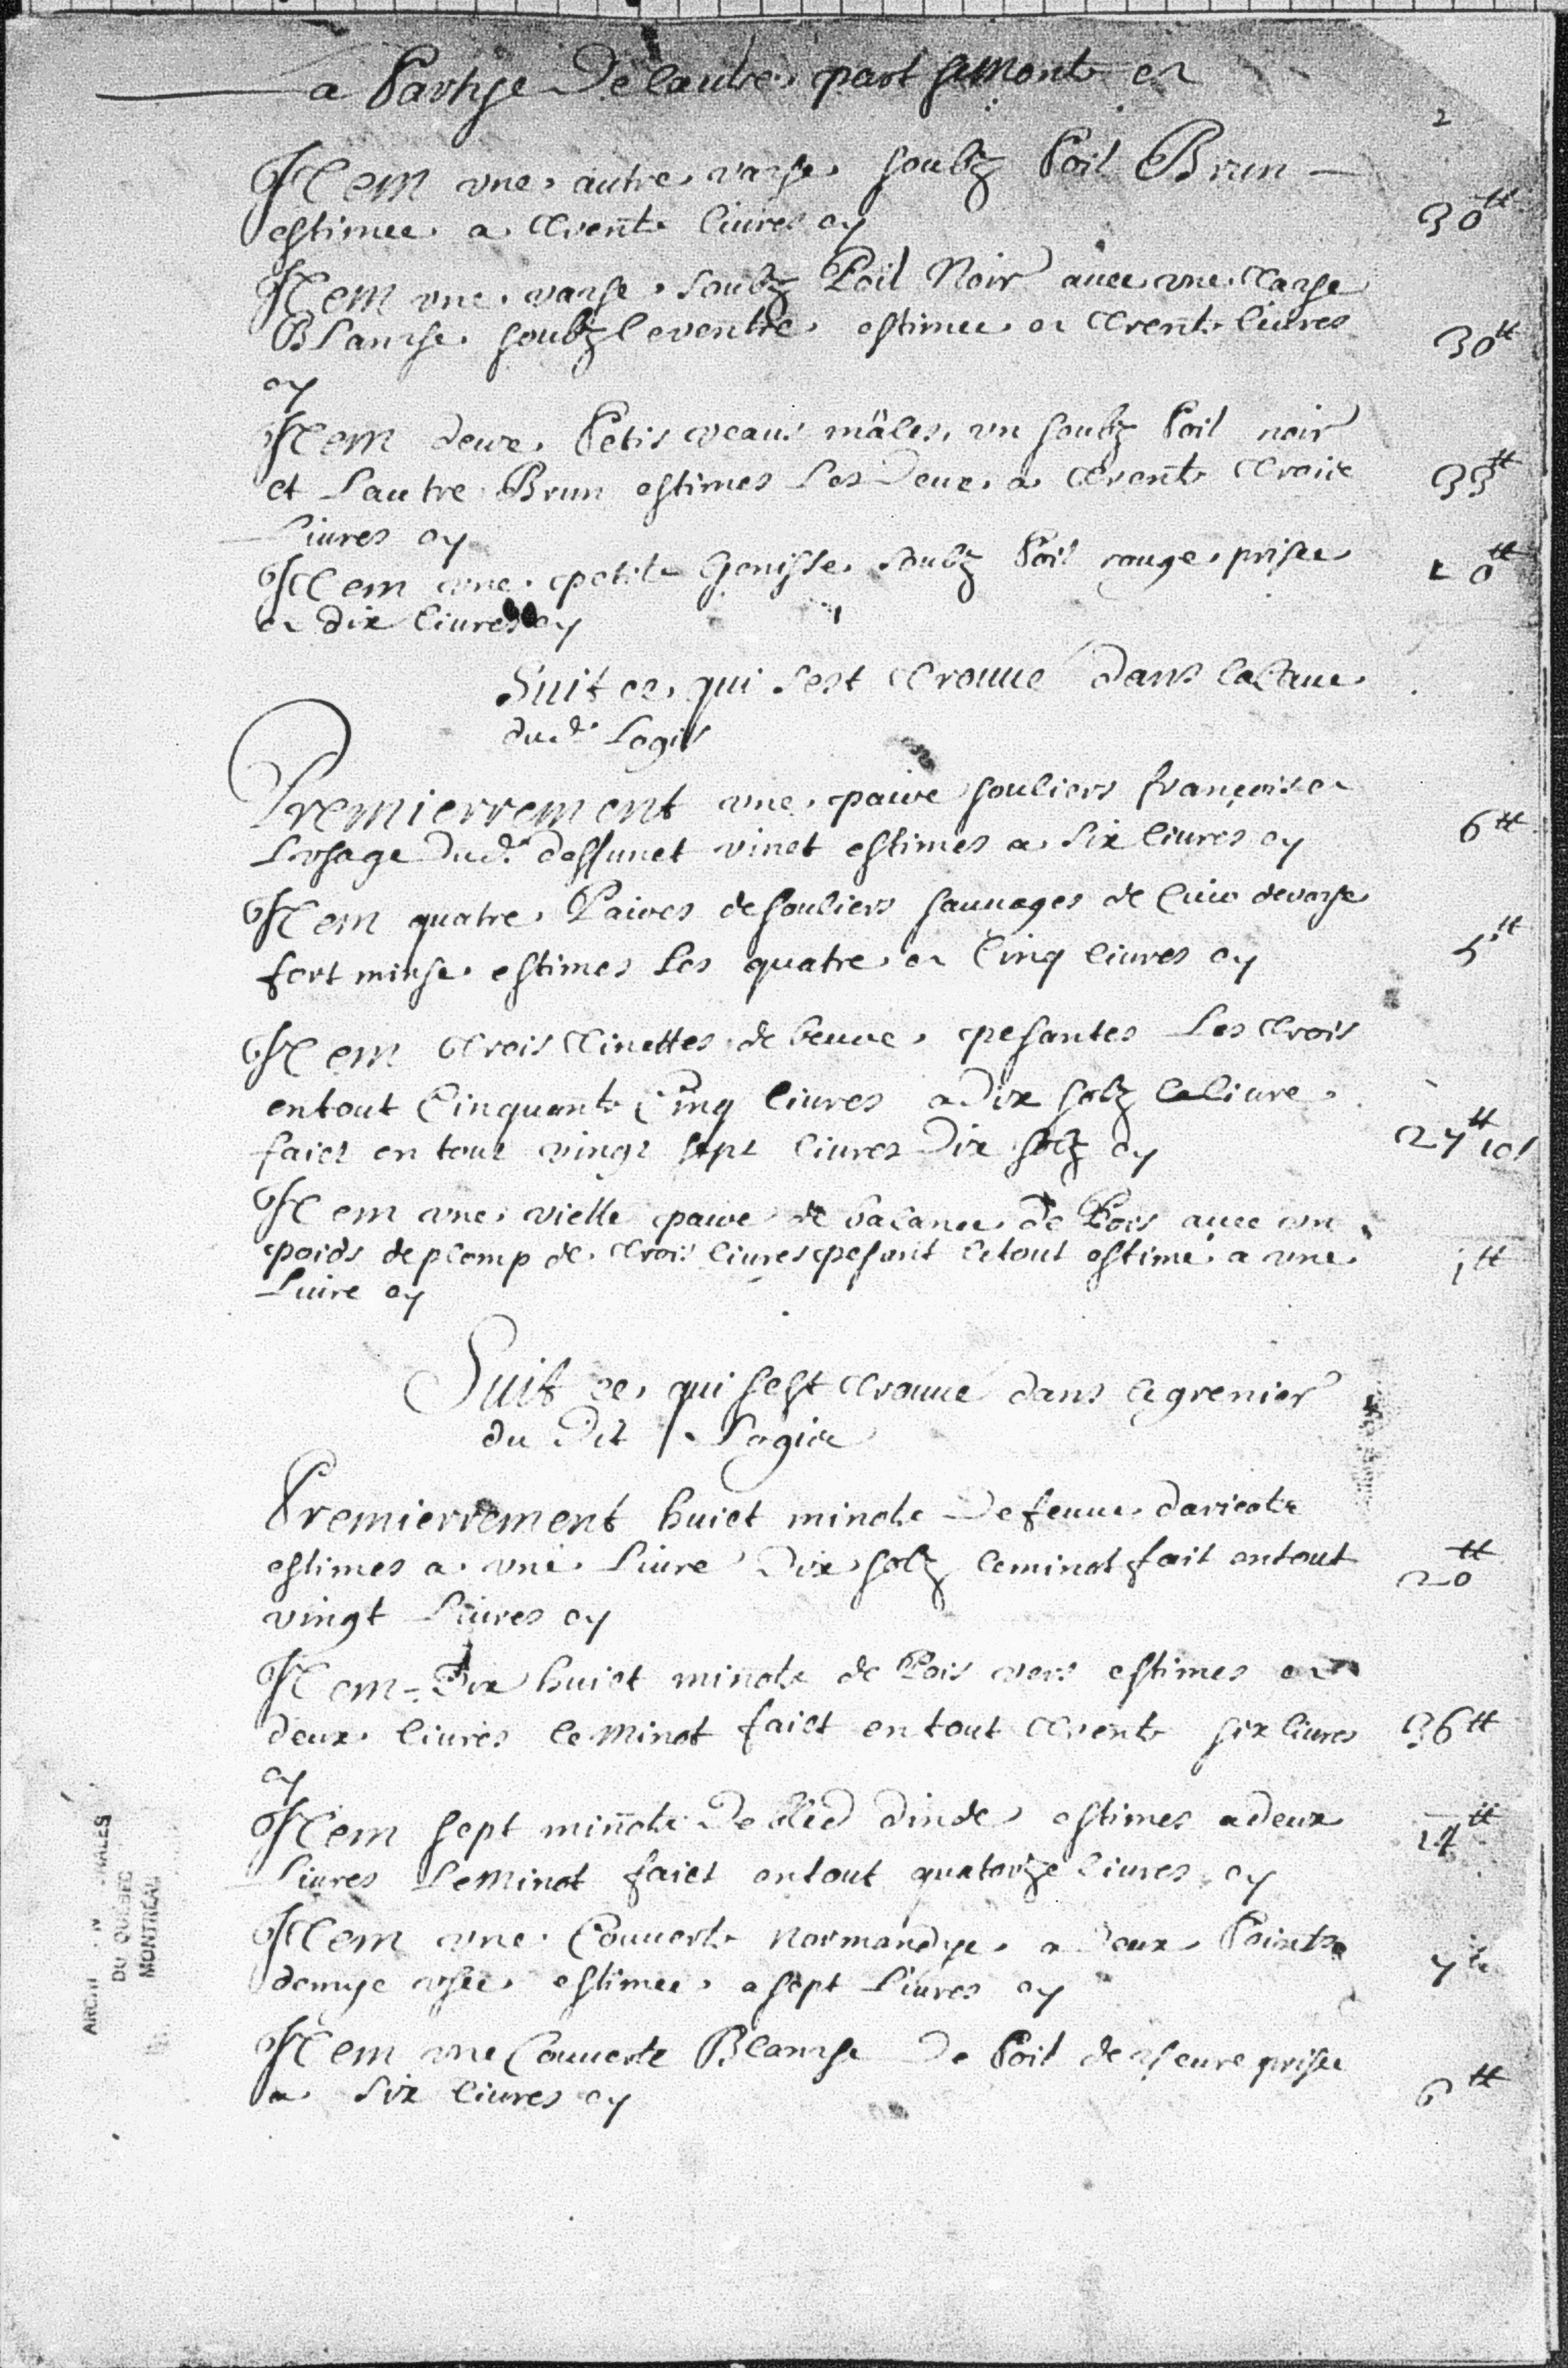 a Partye De lautre part se monte a
2
Item une autre vache soubz Poil Brun
estimee a trente livres cy 30tt
Item une vache soubz Poil Noir avec une tache
Blanche soubz le ventre estimee a trente livres 30tt
cy
Item deux Petis veaus mâles, un soubz Poil noir
et L'autre Brun estimes Les Deux a trente trois 33tt
Livres cy
Item une petite Genisse soubz Poil rouge prisee 10tt
a dix livres cy
Suit ce qui sest trouve dans la Cave
dud. Logis
Premierrement une paire souliers francois a
Lusage Dud. deffunct vinet estimes a six livres cy 6tt
Item quatre Paires de souliers sauvages de Cuir de vache
fort minse estimes Les quatre a Cinq livres cy 5tt
Item trois tinettes de beure pesantes Les trois
entout Cinquante Cinq livres a Dix solz la livre
faict en tout vingt sept livres Dix solz cy 27tt 10s
Item une vielle paire de balance de Bois avec un
poids de plomp de trois livres pesant le tout estimé a une 1tt
Livre cy
Suit ce qui sest trouvé dans le grenier
du Dit Logis
Premierrement huict minots De feuve daricots
estimes a une Livre Dix solz le minot fait entout 20tt
vingt Livres cy
Item Dix huict minots de Pois vers estimes a
deux livres le Minot faict en tout trente six livres 36tt
cy
Item sept minnots De Bled dinde estimes a deux 14tt
Livres Le Minot faict entout quatorze livres cy
Item une Couverte normandye a Deux Points
demye usee estimee a sept Livres cy 7tt
Item une Couverte Blanche De Poil de chevre prisee
a six livres cy 6tt
DU QUÉBEC
MONTRÉAL